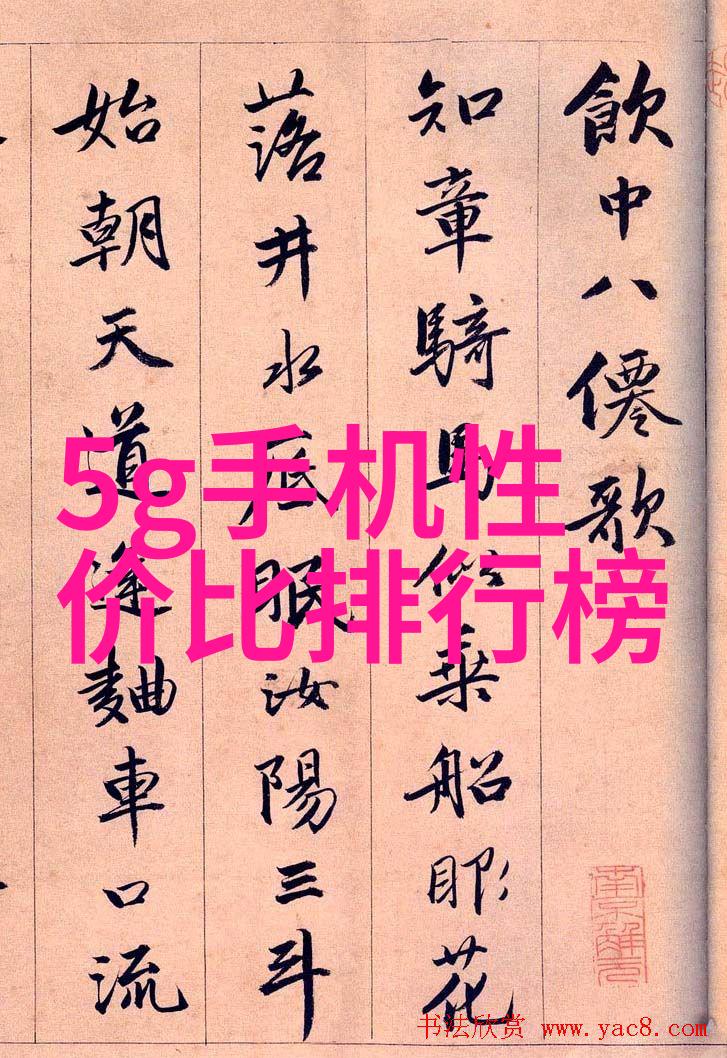 飲中八僊歌
知章騎馬似乘船眼花
落井水底眠汝陽三斗
始朝天道逢麯車口流
5g手机性
价比排行榜
南京解元
书法欣赏 www.yac8.com